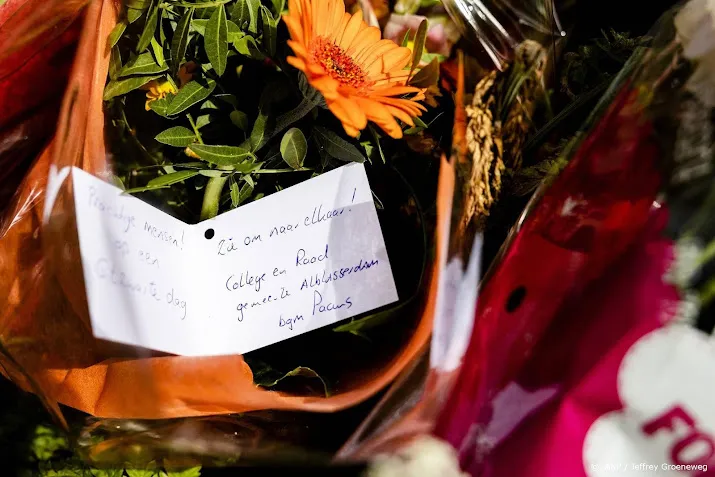 Prachtige mensen!
op een
Gitzwarte dag
Zie om naar elkaar!
College en Raad
gemeente Alblasserdam
bgm Paans
FO
/ Jeffrey Groeneweg